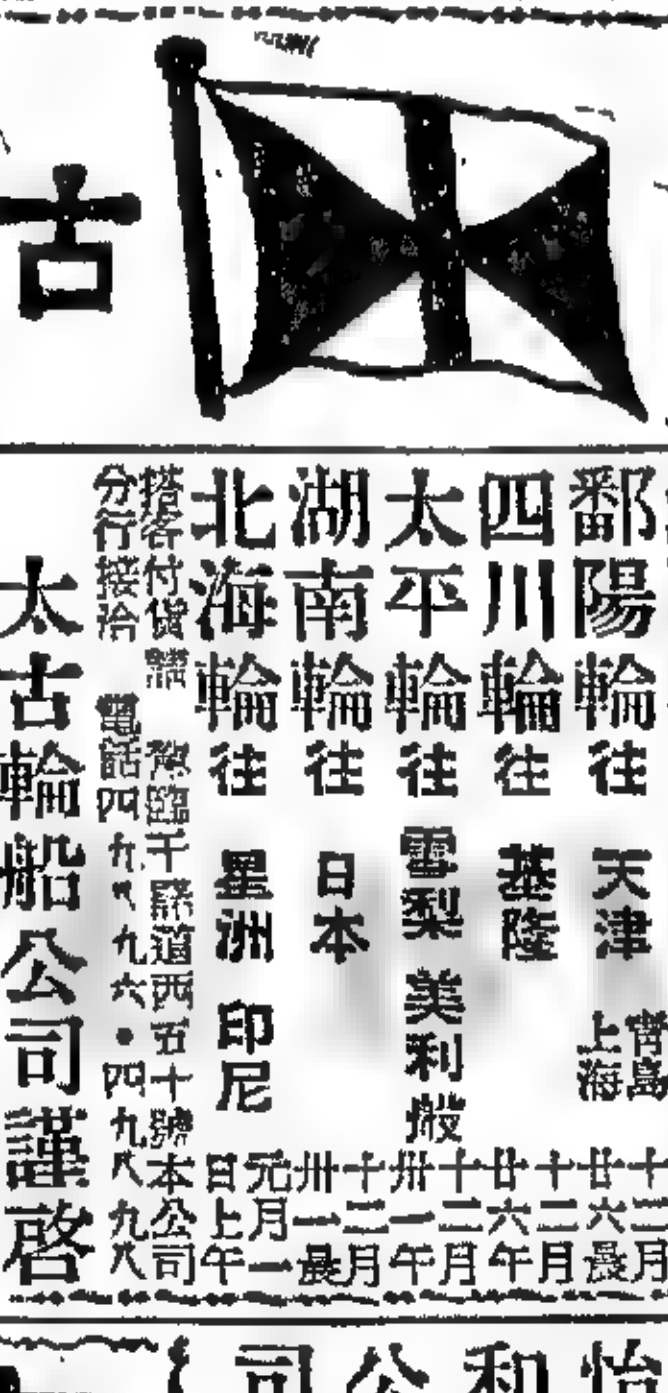 古
鄱陽輪往 天津 青島 上海 十二月廿六晨
四川輪往 基隆 十二月廿六午
太平輪往 雪梨 美利般 十二月卅一午
湖南輪往 日本 十二月卅一晨
北海輪往 星洲 印尼 元月一日上午
搭客付貨請 臨干諾道西五十號本公司
分行接洽 電話四九 九六・四九八九八
太古輪船公司謹啓
怡和公司